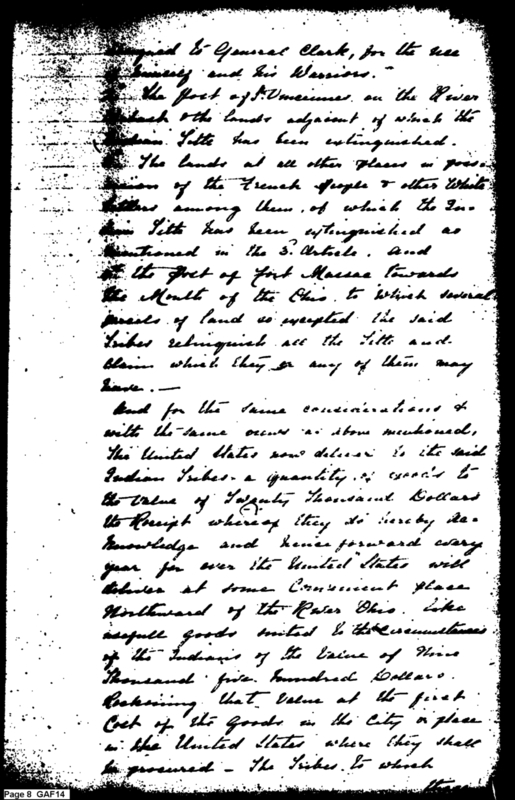 assigned to General Clark, for the use
of himself and his Warriors."
The Post of St. Vincennes on the River
Wabash & the lands adjacent of which the
Indian Title has been extinguished.
The lands at all other places in poss-
ession of the French people & other White
settlers among them, of which the In-
dian Title has been extinguished as
mentioned in the 3d Article. And
the Post of Fort Massac towards
the Mouth of the Ohio. to Which several
parcels of land so excepted the said
Tribes relinquish all the Title and
claim which they or any of them may
have. —
And for the same considerations &
with the same views as above mentioned,
The United States now deliver to the said
Indian Tribes a quantity of goods to
the Value of Twenty Thousand Dollars
the Receipt whereof they do hereby Ac-
knowledge and hence forward every
year for ever the United States will
deliver at some Convenient place
Northward of the River Ohio. Like
usefull goods suited to the Circumstances
of the Indians of the Value of Nine
Thousand five Hundred Dollars.
Reckoning that Value at the first
Cost of the Goods in the City or place
in the United States where they shall
be procured — The Tribes to which
Page 8 GAF14